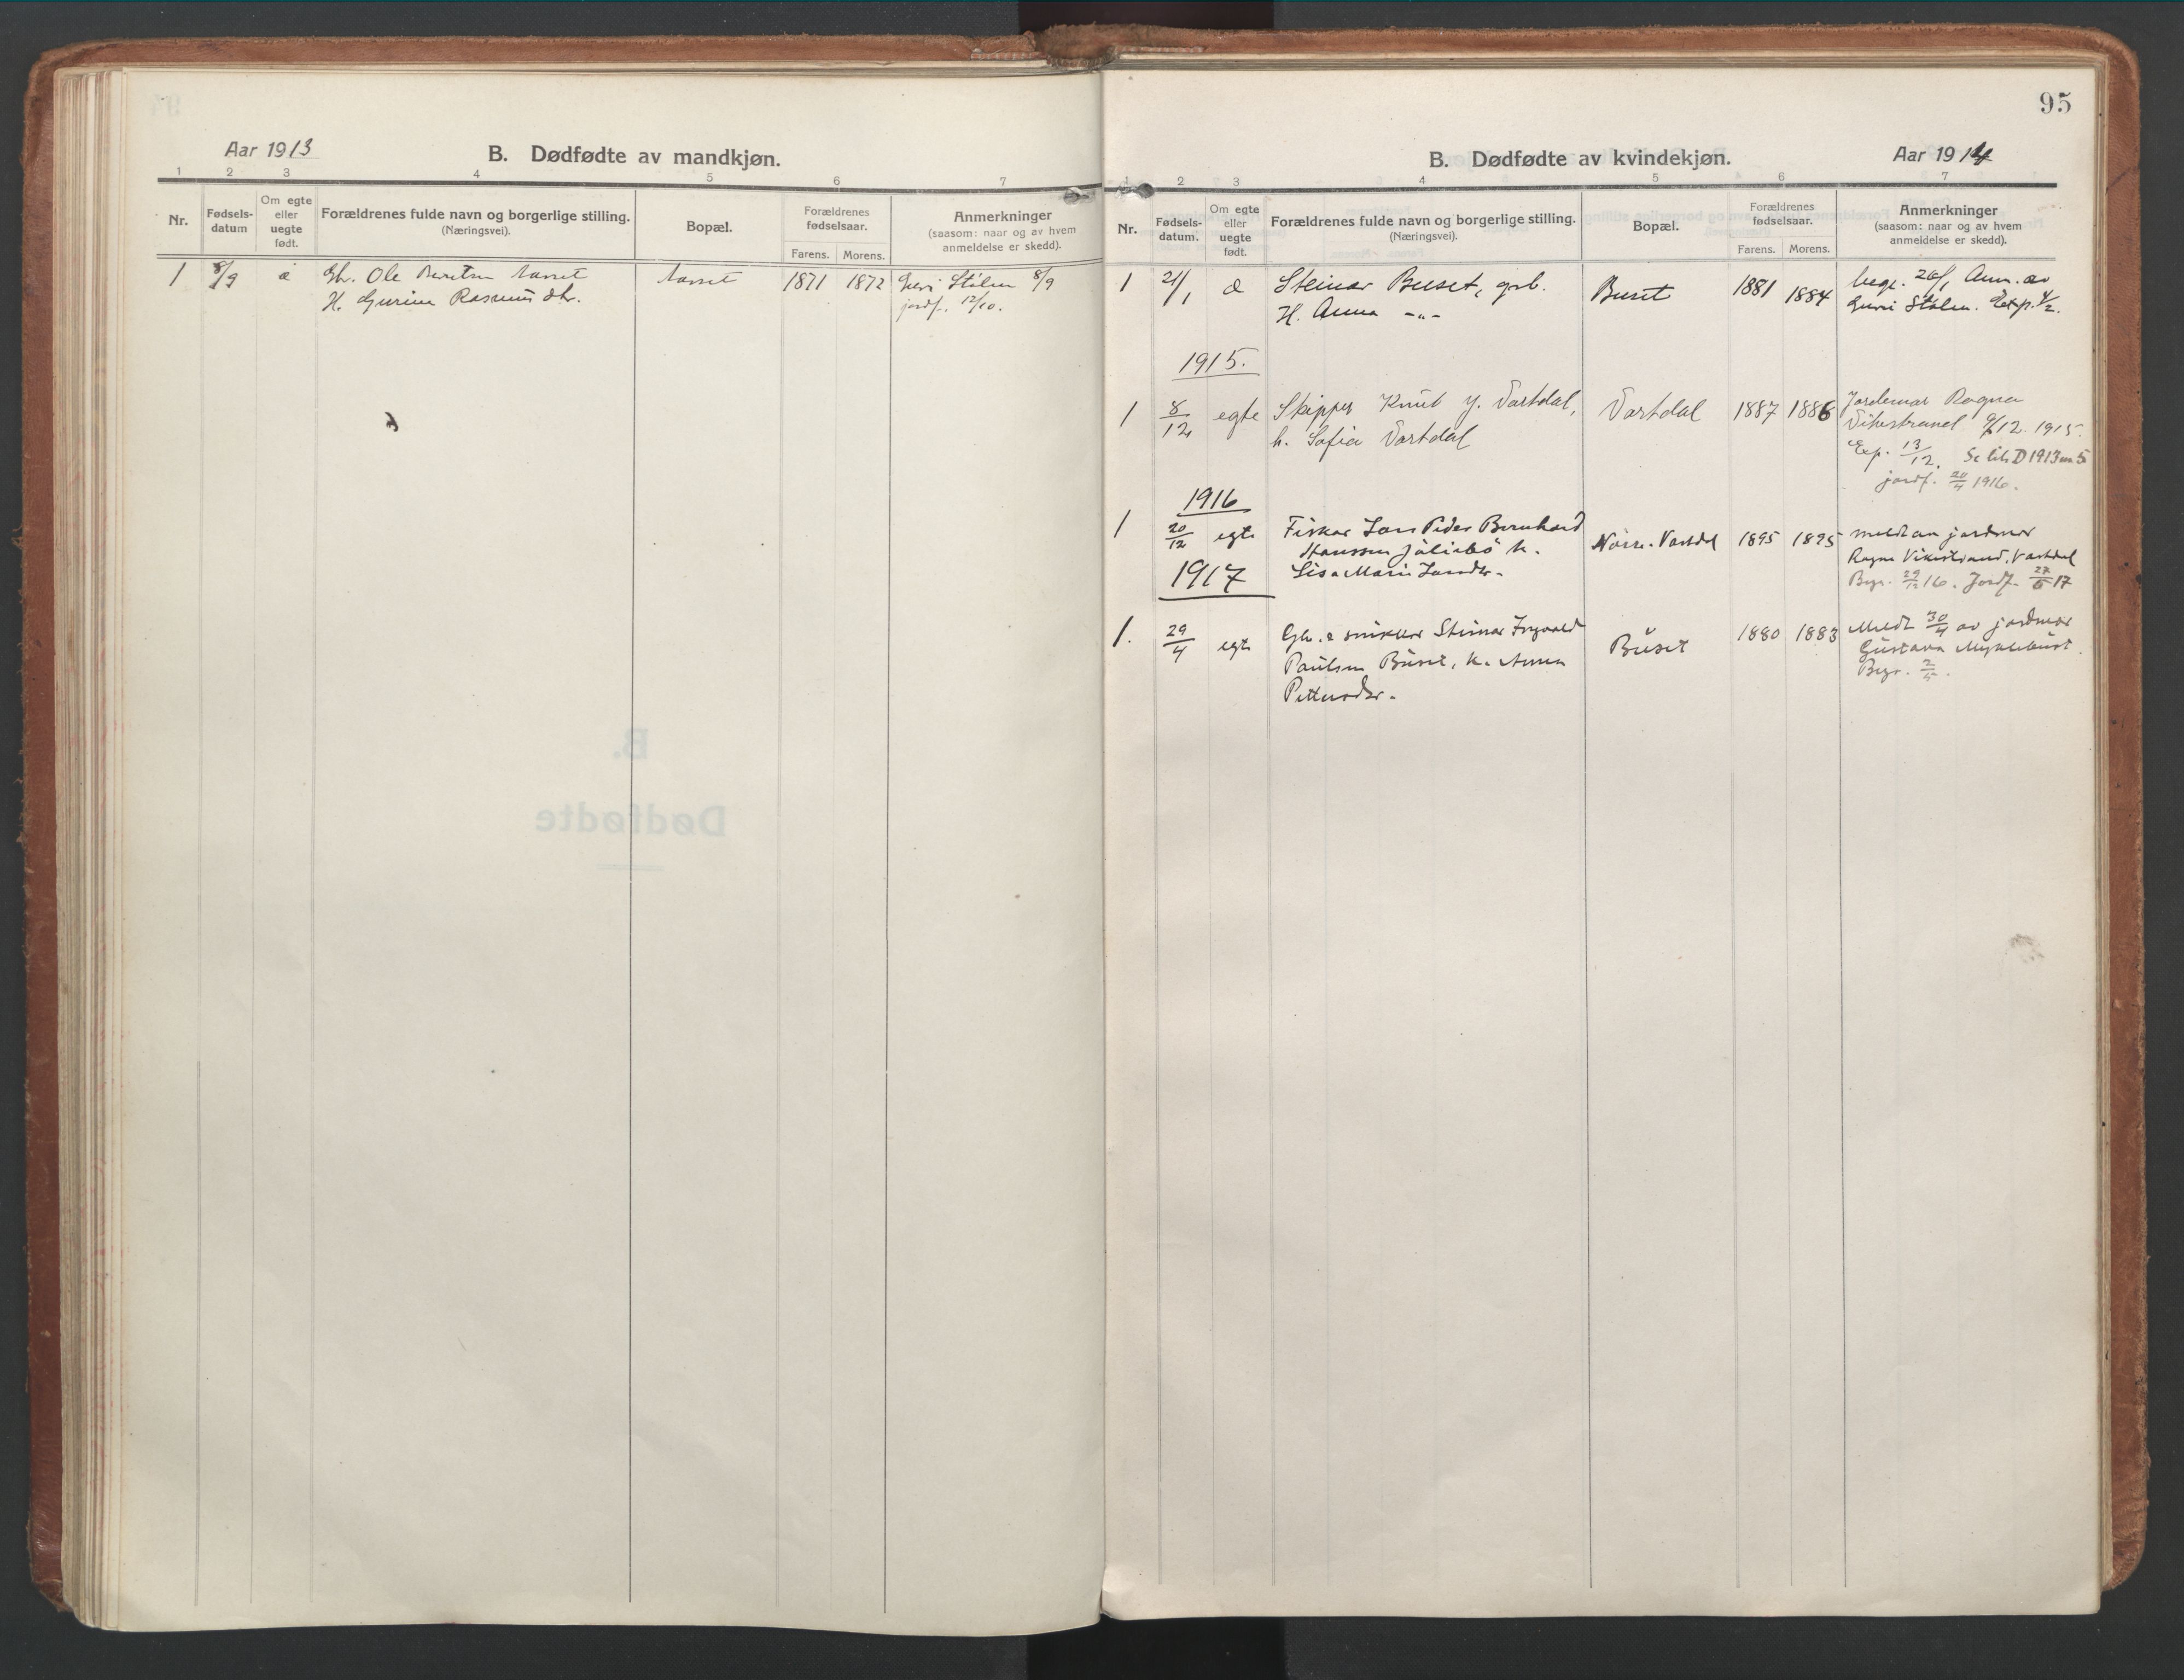 Aar 1913
B. Dødfødte av mandkjøn.
1 2 3 4 5 6 7
Nr.
Fødsels-
datum
Om egte
eller
uegte
født.
Forældrenes fulde navn og borgerlige stilling.
(Næringsvei).
Bopæl.
Forældrenes
fødselsaar.
Farens. Morens.
Anmerkninger
(saasom: naar og av hvem
anmeldelse er skedd).
1 8/9 æ Gbr. Ole Beretsen Aasset Aasset 1871 1872 Guri Stålen 8/9
H. Gurine Rasmusdtr. jordf. 12/10.
95
B. Dødfødte av kvindekjøn.
Aar 1914
1 2 3 4 5 6 7
Nr.
Fødsels-
datum.
Om egte
eller
uegte
født.
Forældrenes fulde navn og borgerlige stilling.
(Næringsvei).
Bopæl.
Forældrenes
fødselsaar.
Farens. Morens.
Anmerkninger
(saasom: naar og av hvem
anmeldelse er skedd).
1 21/1 æ Steinar Buset, grb. Buset 1881 1884 begr. 26/1 Anm. av
H. Anna -"- Guri Stålen. Exp. 4/2.
1915.
1 8/12 egte Skipper Knut J. Vartdal, Vartdal 1887 1886 Jordemor Ragna
h. Sofia Vartdal Vikestrand 9/12. 1915.
Exp. 13/12. Se lit. D 1913 nr 5
jordf. 20/4 1916.
1916
1 20/12 egte Fiskar Lars Peder Bernhard Nørre-Vartdal 1895 1895 meldt av jordmor
Hanssen Jøliebø h. Ragna Vikestrand, Vartdal
Lisa Marie Larsdtr. Begr. 29/12 16. Jordf. 27/5 17
1917
1. 29/4 egte Gbr. & snikkar Steinar Ingvald Buset 1880 1883 Meldt 30/4 av jordmor
Paulsen Buset, h. Anna Gustava Myklebust.
Pettersdtr. Begr. 2/5.